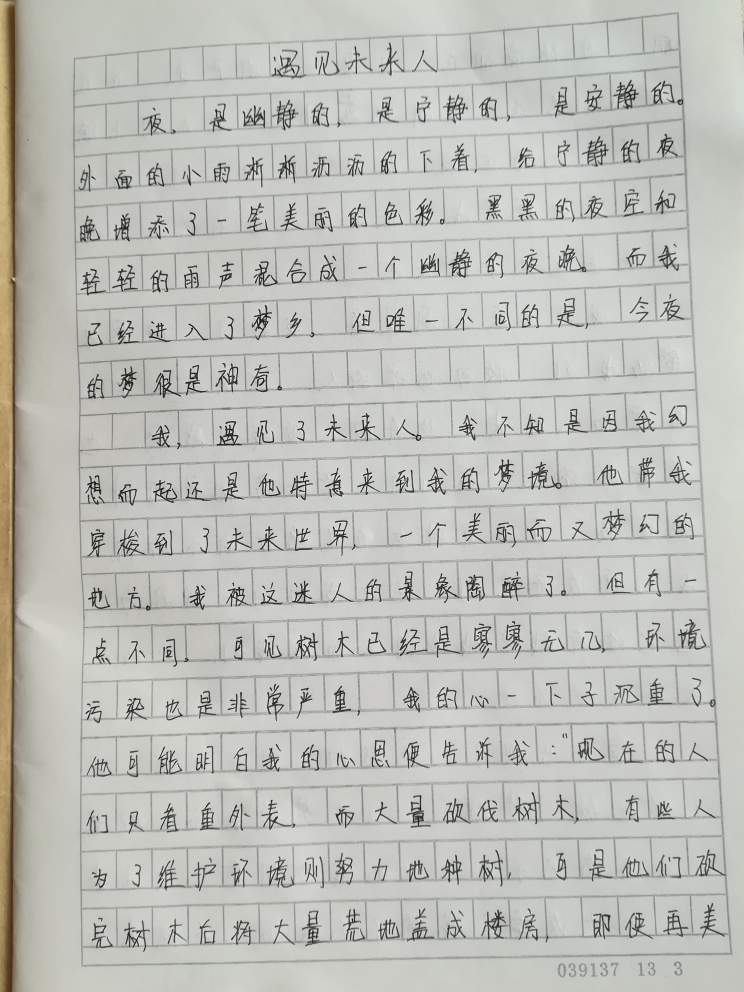 遇见未来人
夜，是幽静的，是宁静的，是安静的。
外面的小雨淅淅沥沥的下着，给宁静的夜
晚增添了一笔美丽的色彩。黑黑的夜空和
轻轻的雨声混合成一个幽静的夜晚。而我
已经进入了梦乡，但唯一不同的是，今夜
的梦很是神奇。
我，遇见了未来人。我不知是因我幻
想而起还是他特意来到我的梦境。他带我
穿梭到了未来世界，一个美丽而又梦幻的
地方。我被这迷人的景象陶醉了。但有一
点不同，可见树木已经是寥寥无几，环境
污染也是非常严重，我的心一下子沉重了。
他可能明白我的心思便告诉我："现在的人
们只看重外表，而大量砍伐树木，有些人
为了维护环境则努力地种树，可是他们砍
完树木后将大量荒地盖成楼房，即使再美
039137 13 3